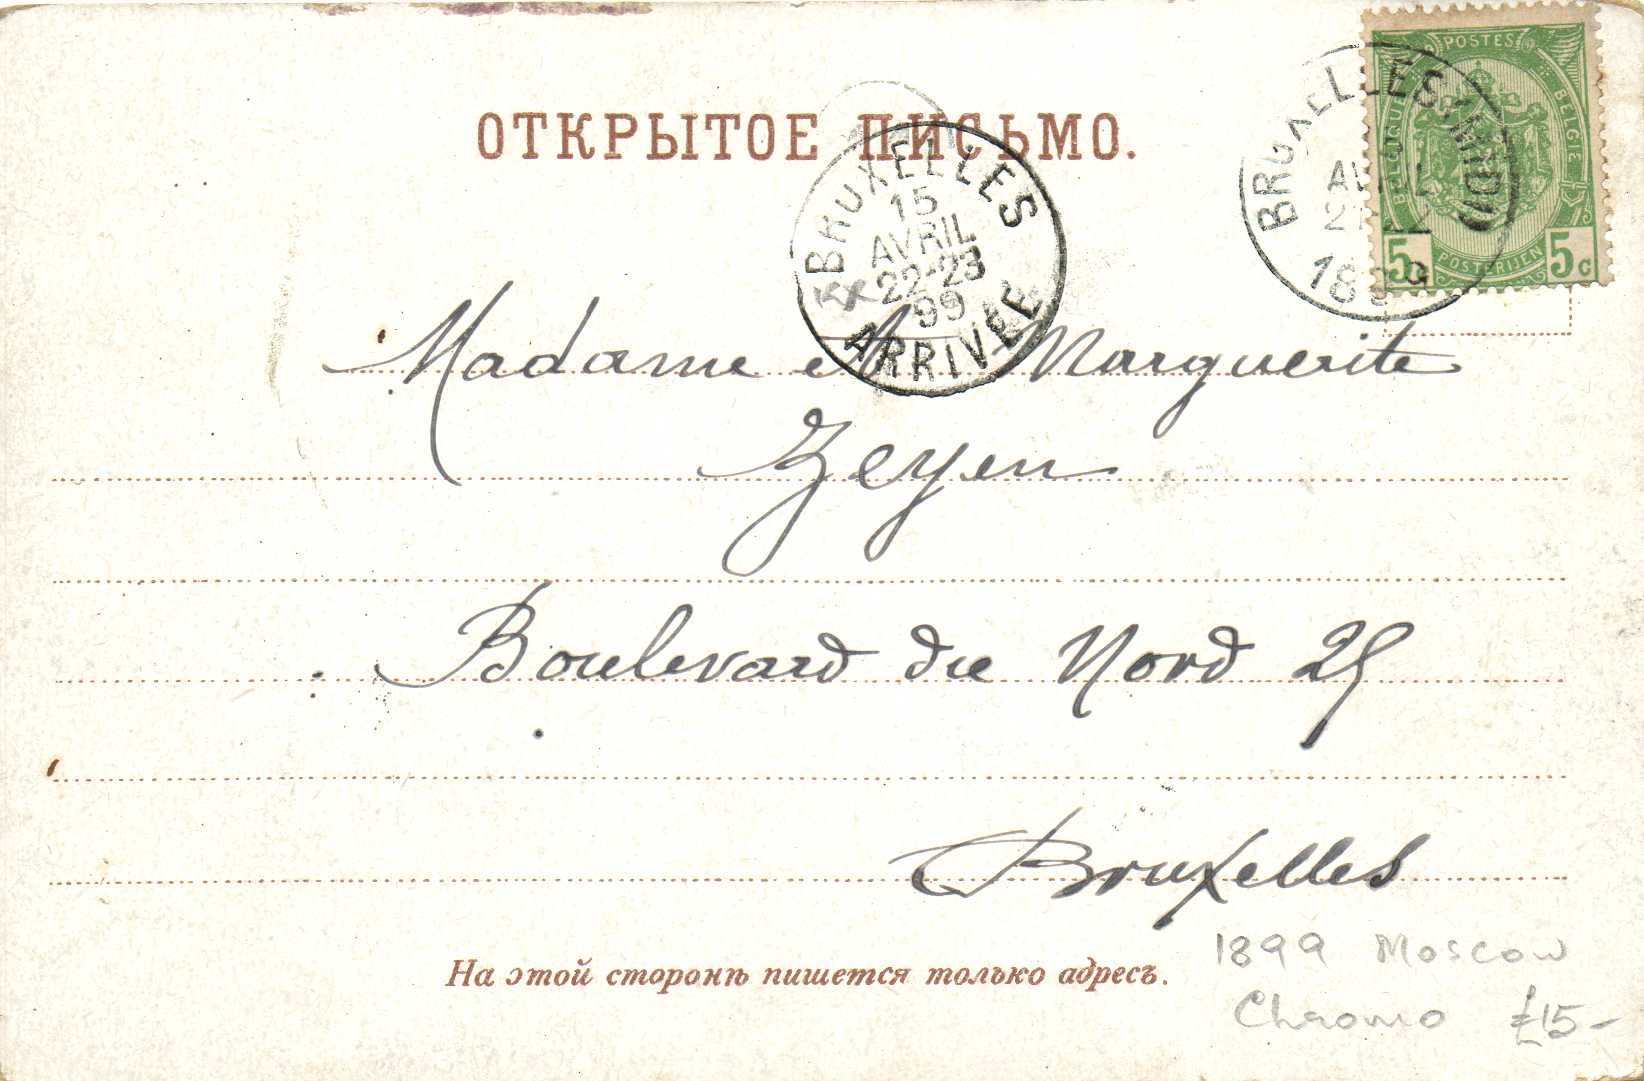 POSTES
BELGIQUE BELGIE
5 5c
POSTERIJEN
BRUXELLES (MIDI)
AVRIL
ОТКРЫТОЕ ПИСЬМО.
BRUXELLES
15
AVRIL
22-23
99
ARRIVÉE
Madame et M Marguerite
Zeyen
Boulevard du Nord 25
Bruxelles
На этой сторонѣ пишется только адресъ.
1899 Moscow
Chromo £15-